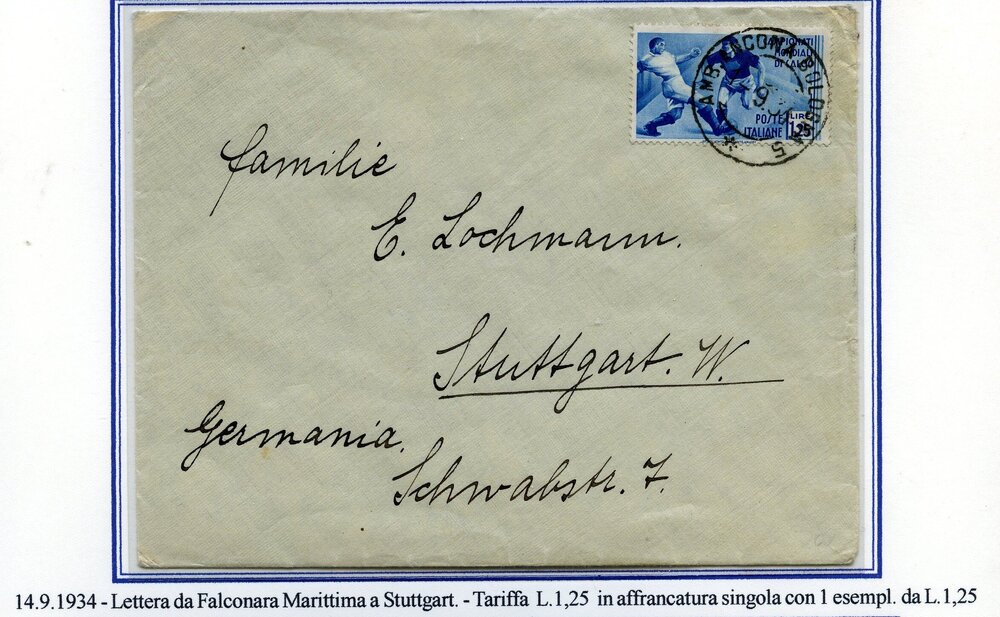 CAMPIONATI
MONDIALI
DI CALCIO
POSTE LIRE
ITALIANE 1,25
AMB. ANCONA BOLOGNA 5
familie
E. Lochmann.
Stuttgart. W.
Germania.
Schwabstr. 7.
14.9.1934 - Lettera da Falconara Marittima a Stuttgart. - Tariffa L.1,25 in affrancatura singola con 1 esempl. da L.1,25